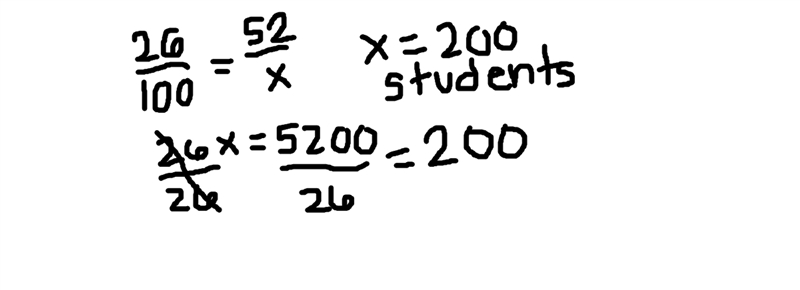 26/100 = 52/x x = 200 students
26x/26 = 5200/26 = 200